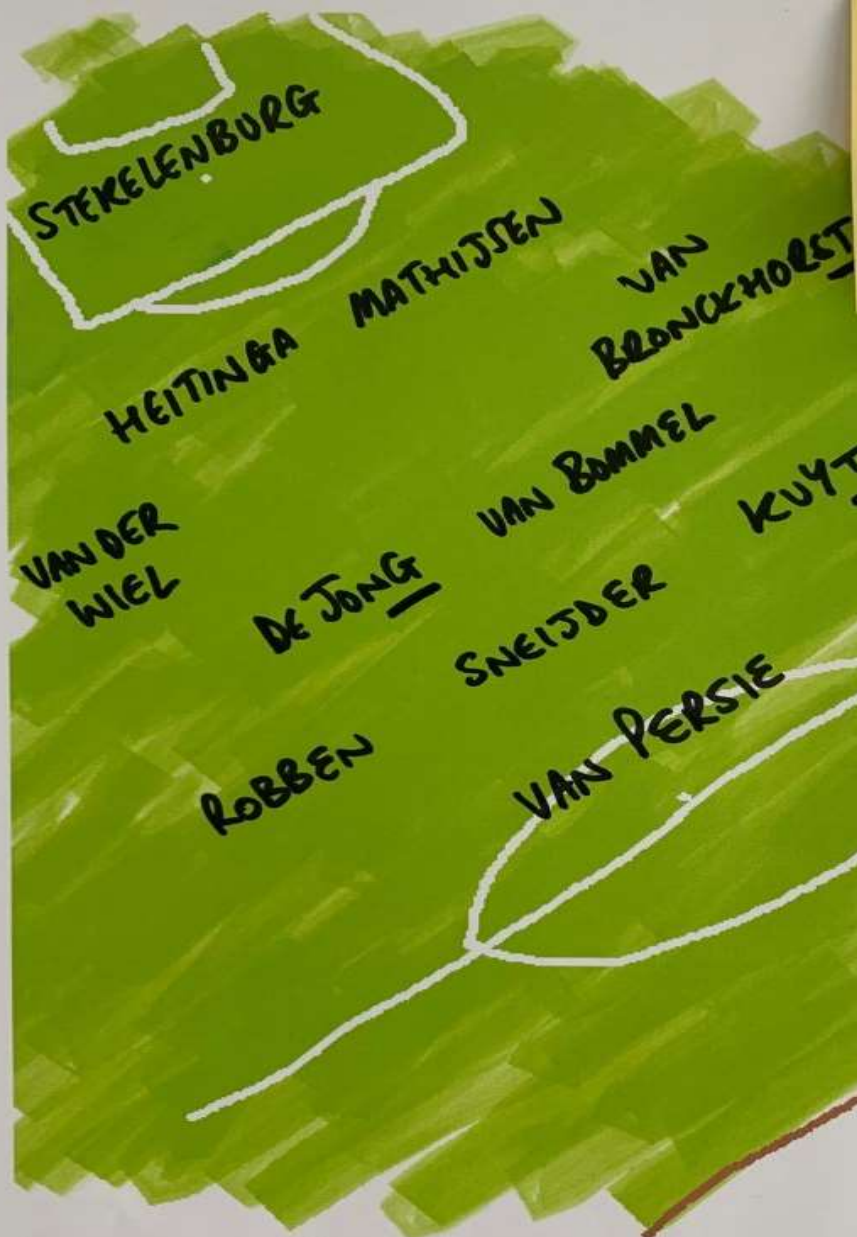 STEKELENBURG
HEITINGA MATHIJSEN
VAN
BRONCKHORST
VAN DER
WIEL
DE JONG VAN BOMMEL KUYT
SNEIJDER
ROBBEN
VAN PERSIE